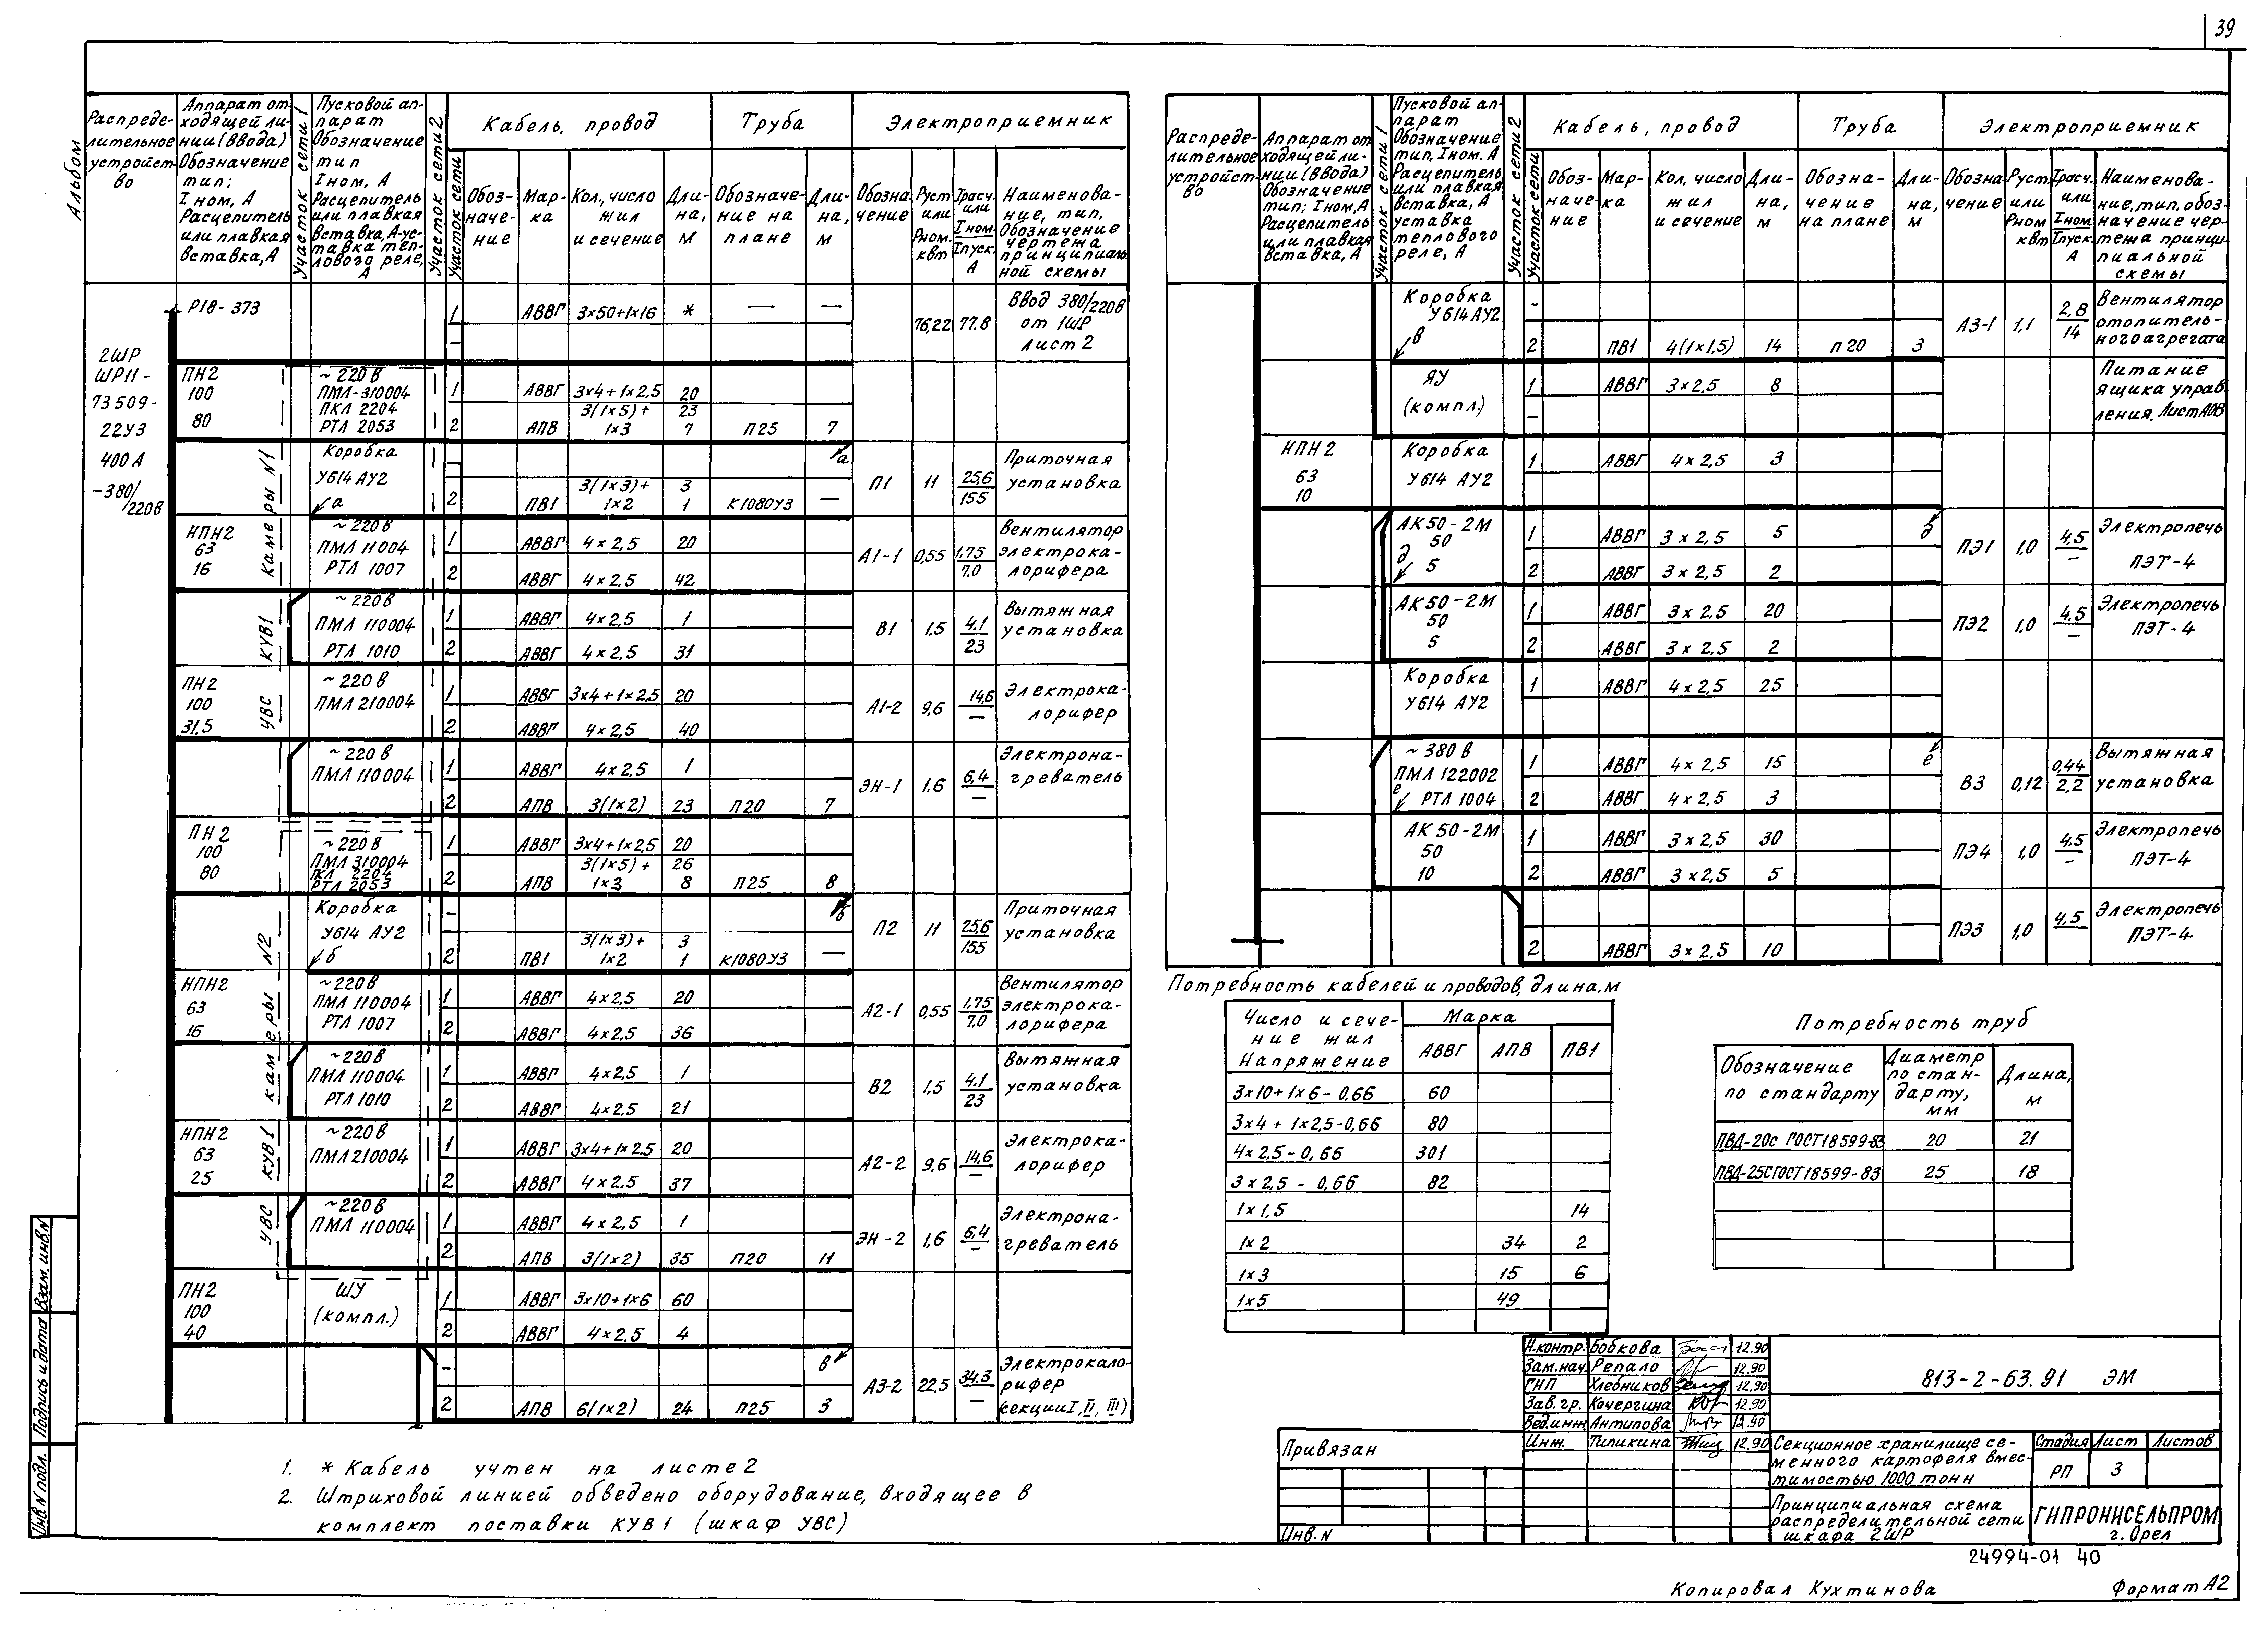 39
Альбом
Распределительное устройство
Аппарат отходящей линии (ввода) Обозначение тип; Iном, А Расцепитель или плавкая вставка, А
Участок сети 1
Пусковой аппарат Обозначение тип Iном, А Расцепитель или плавкая вставка, А уставка теплового реле, А
Участок сети 2
Участок сети
Кабель, провод
Труба
Электроприемник
Обозначение
Марка
Кол, число жил и сечение
Длина, м
Обозначение на плане
Длина, м
Обозначение
Руст или Рном. кВт
Iрасч. или Iном Iпуск. А
Наименование, тип, Обозначение чертежа принципиальной схемы
2ШР
ШР11-
73509-
22У3
400А
~380/
220В
Р18-373
1 АВВГ 3×50+1×16 * — — 76,22 77.8 Ввод 380/220В от 1ШР лист 2
–
ПН2 100 80
~220В ПМЛ-310004 ПКЛ 2204 РТЛ 2053
1 АВВГ 3×4+1×2,5 20
2 АПВ 3(1×5)+1×3 23 7 П25 7
камеры N1
Коробка У614 АУ2 а
–
а
2 ПВ1 3(1×3)+1×2 3 1 К1080У3 —
П1 11 25,6/155 Приточная установка
НПН2 63 16
~220В ПМЛ 11004 РТЛ 1007
1 АВВГ 4×2,5 20
2 АВВГ 4×2,5 42
А1-1 0,55 1,75/7.0 Вентилятор электрокалорифера
КУВ1
~220В ПМЛ 110004 РТЛ 1010
1 АВВГ 4×2,5 1
2 АВВГ 4×2,5 31
В1 1.5 4.1/23 Вытяжная установка
УВС
ПН2 100 31,5
~220В ПМЛ 210004
1 АВВГ 3×4+1×2,5 20
2 АВВГ 4×2,5 40
А1-2 9,6 14,6/— Электрокалорифер
~220В ПМЛ 110004
1 АВВГ 4×2,5 1
2 АПВ 3(1×2) 23 П20 7
ЭН-1 1.6 6,4/— Электронагреватель
ПН2 100 80
~220В ПМЛ 310004 ПКЛ 2204 РТЛ 2053
1 АВВГ 3×4+1×2,5 20
2 АПВ 3(1×5)+1×3 26 8 П25 8
камеры N2
Коробка У614 АУ2 б
–
б
2 ПВ1 3(1×3)+1×2 3 1 К1080У3 —
П2 11 25,6/155 Приточная установка
НПН2 63 16
~220В ПМЛ 110004 РТЛ 1007
1 АВВГ 4×2,5 20
2 АВВГ 4×2,5 36
А2-1 0,55 1,75/7.0 Вентилятор электрокалорифера
~220В ПМЛ 110004 РТЛ 1010
1 АВВГ 4×2,5 1
2 АВВГ 4×2,5 21
В2 1,5 4.1/23 Вытяжная установка
КУВ1
НПН2 63 25
~220В ПМЛ 210004
1 АВВГ 3×4+1×2,5 20
2 АВВГ 4×2.5 37
А2-2 9,6 14,6/— Электрокалорифер
УВС
~220В ПМЛ 110004
1 АВВГ 4×2,5 1
2 АПВ 3(1×2) 35 П20 11
ЭН-2 1,6 6,4/— Электронагреватель
ПН2 100 40
ШУ (компл.)
1 АВВГ 3×10+1×6 60
2 АВВГ 4×2,5 4
–
в
2 АПВ 6(1×2) 24 П25 3
А3-2 22,5 34.3/— Электрокалорифер (секции I, II, III)
1. * Кабель учтен на листе 2
2. Штриховой линией обведено оборудование, входящее в
комплект поставки КУВ1 (шкаф УВС)
Распределительное устройство
Аппарат отходящей линии (ввода) Обозначение тип; Iном, А Расцепитель или плавкая вставка, А
Участок сети 1
Пусковой аппарат Обозначение тип, Iном. А Расцепитель или плавкая вставка, А уставка теплового реле, А
Участок сети 2
Участок сети
Кабель, провод
Труба
Электроприемник
Обозначение
Марка
Кол, число жил и сечение
Длина, м
Обозначение на плане
Длина, м
Обозначение
Руст. или Рном кВт
Iрасч. или Iном Iпуск. А
Наименование, тип, обозначение чертежа принципиальной схемы
Коробка У614 АУ2 в
–
2 ПВ1 4(1×1,5) 14 П20 3
А3-1 1,1 2,8/14 Вентилятор отопительного агрегата
ЯУ (компл.)
1 АВВГ 3×2,5 8
–
Питание ящика управления. Лист АОВ
НПН2 63 10
Коробка У614 АУ2
1 АВВГ 4×2,5 3
АК50-2М 50 д 5
1 АВВГ 3×2,5 5 д
2 АВВГ 3×2,5 2
ПЭ1 1,0 4,5/— Электропечь ПЭТ-4
АК50-2М 50 5
1 АВВГ 3×2,5 20
2 АВВГ 3×2,5 2
ПЭ2 1,0 4,5/— Электропечь ПЭТ-4
Коробка У614 АУ2
1 АВВГ 4×2,5 25
~380В ПМЛ 122002 е РТЛ 1004
1 АВВГ 4×2,5 15 е
2 АВВГ 4×2,5 3
В3 0,12 0,44/2,2 Вытяжная установка
АК50-2М 50 10
1 АВВГ 3×2,5 30
2 АВВГ 3×2,5 5
ПЭ4 1,0 4,5/— Электропечь ПЭТ-4
2 АВВГ 3×2,5 10
ПЭ3 1,0 4.5 Электропечь ПЭТ-4
Потребность кабелей и проводов, длина, м
Число и сечение жил Напряжение
Марка
АВВГ АПВ ПВ1
3×10+1×6-0,66 60
3×4+1×2,5-0,66 80
4×2,5-0,66 301
3×2,5-0,66 82
1×1,5 14
1×2 34 2
1×3 15 6
1×5 49
Потребность труб
Обозначение по стандарту
Диаметр по стандарту, мм
Длина, м
ПВД-20С ГОСТ 18599-83 20 21
ПВД-25С ГОСТ 18599-83 25 18
Н.контр. Бобкова 12.90
Зам.нач. Репало 12.90
ГНП Хлебников 12.90
Зав.гр. Кочергина 12.90
Вед.инж. Антипова 12.90
Инж. Типикина 12.90
813-2-63.91 ЭМ
Секционное хранилище семенного картофеля вместимостью 1000 тонн
Стадия Лист Листов
РП 3
Принципиальная схема распределительной сети шкафа 2ШР
ГИПРОНИСЕЛЬПРОМ
г. Орел
Привязан
Инв.N
Взам. инв.N
Подпись и дата
Инв.N подл.
24994-01 40
Копировал Кухтинова
Формат А2